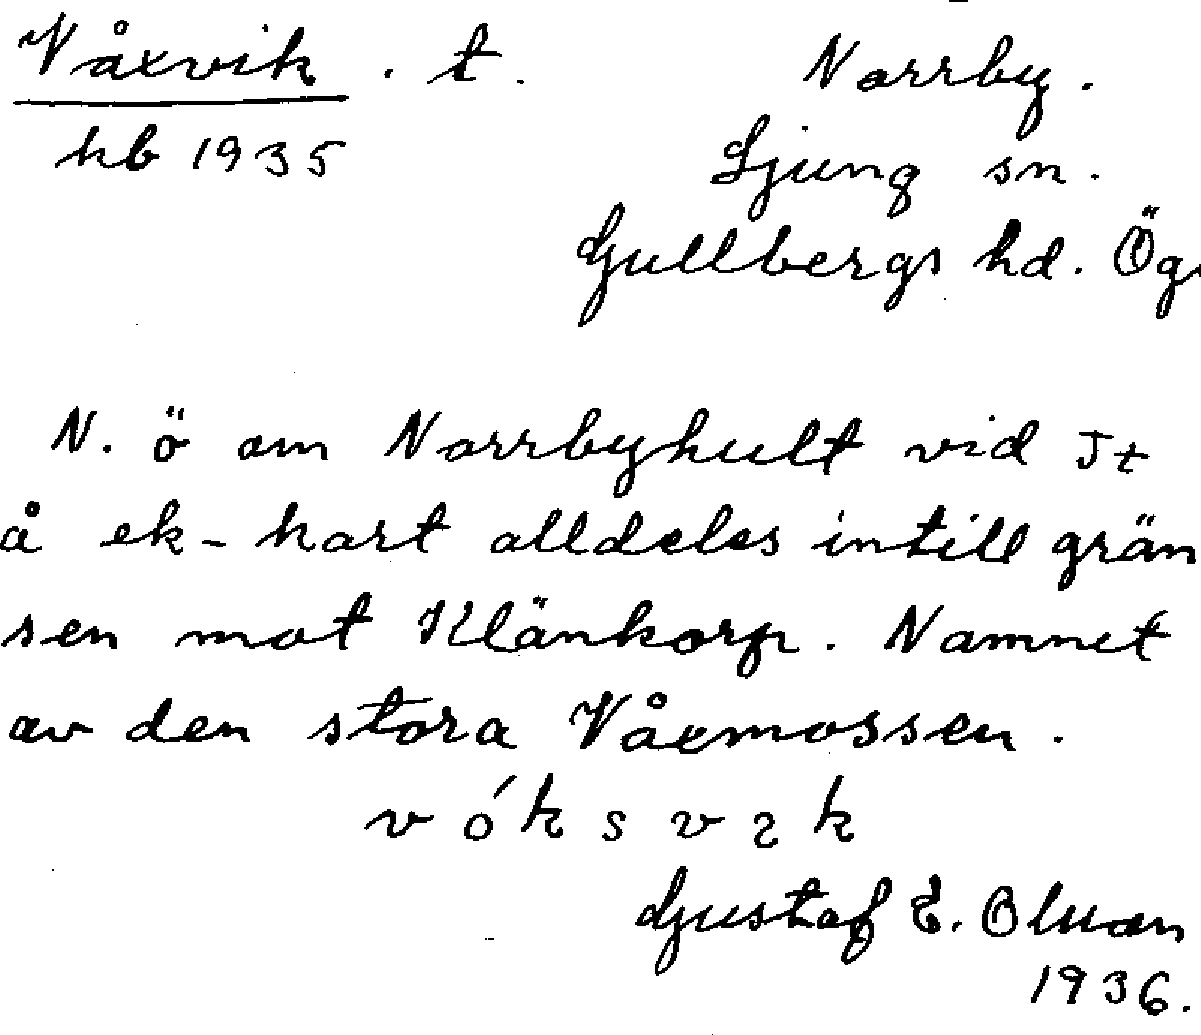 Våxvik . t.
hb 1935
Norrby.
Ljung sn.
Gullbergs hd. Ög.
N. ö om Norrbyhult vid Jt
å ek-kart alldeles intill grän
sen mot Klänkorp. Namnet
av den stora Våxmossen.
v ó k s v ɩ k
Gustaf E. Olsson
1936.